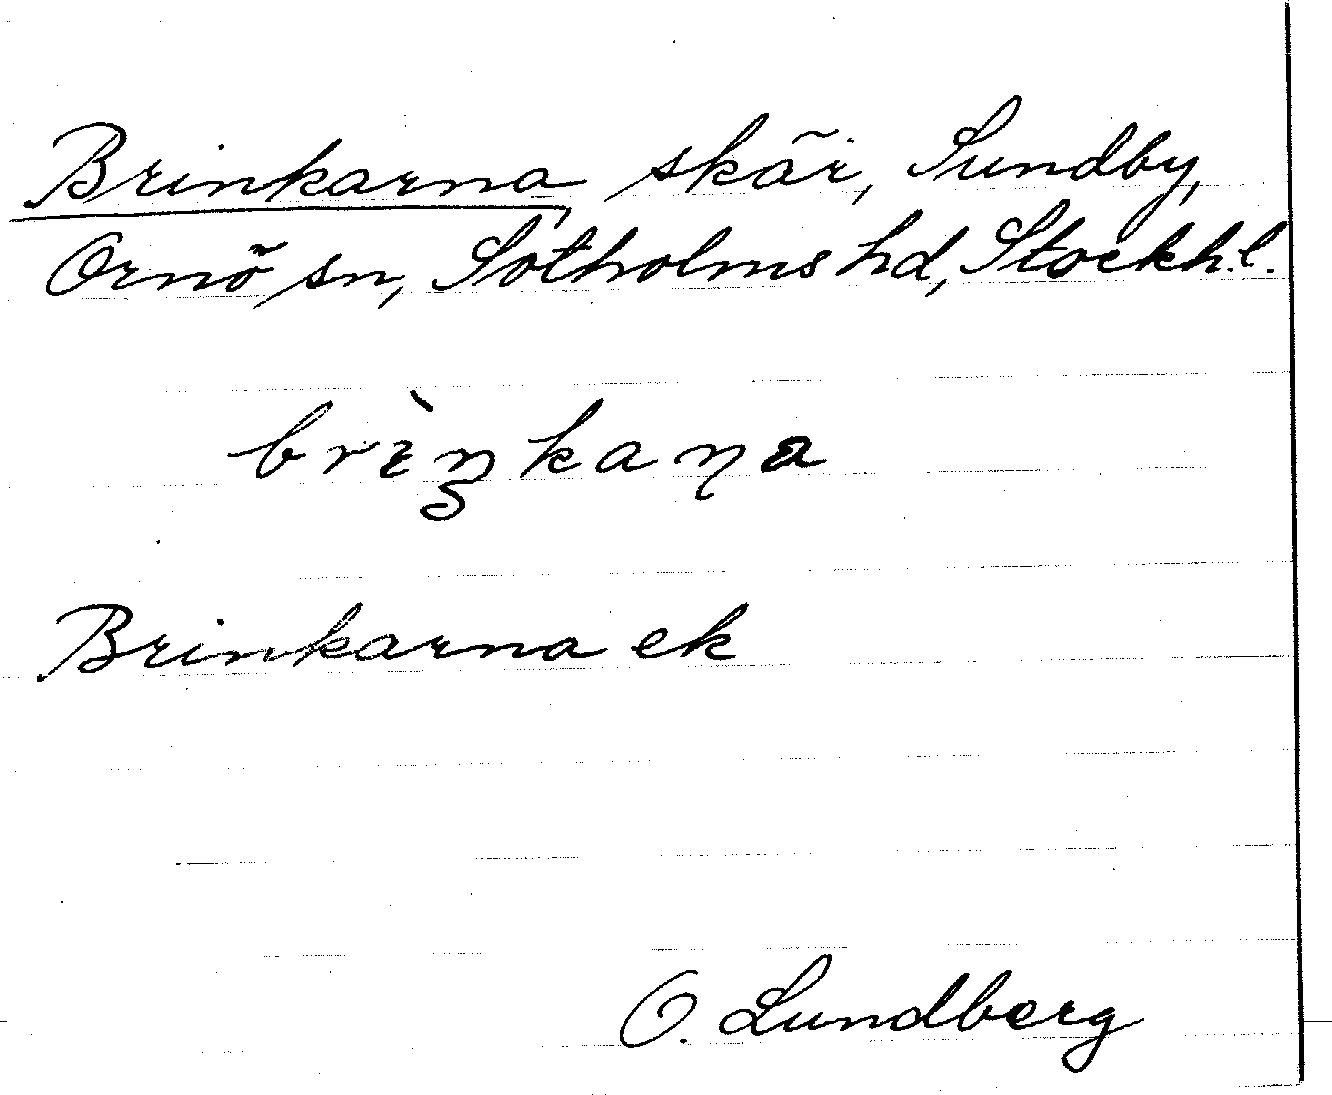 Brinkarna, skär, Sundby,
Ornö sn, Sotholms hd, Stockh. l.
brìŋkaɳa
Brinkarna ek
O. Lundberg